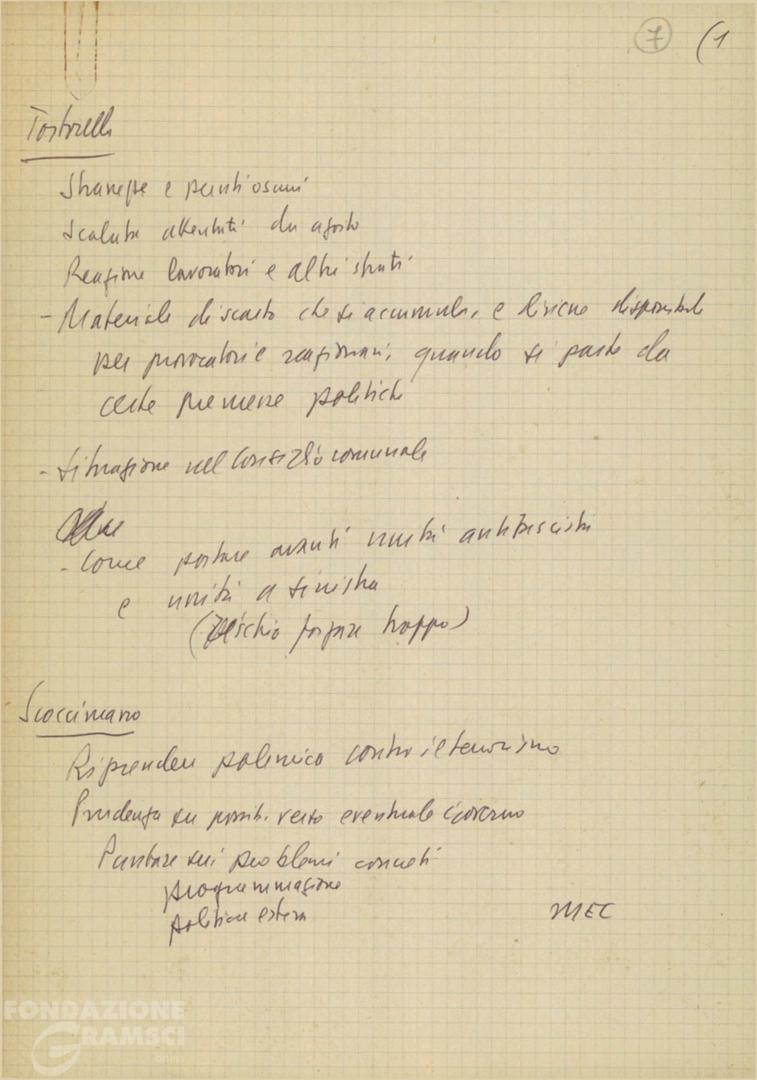 7 (1
Tortorella
Stragi e
Scalata attentati da agosto
Reazione lavoratori e altri strati
- Materiale di scarto che si accumula, e diviene disponibile
per provocatori e reazionari, quando si parte da
certe premesse politiche
- Situazione nel Consiglio comunale
- Come portare avanti unità antifascista
e unità a sinistra
(Rischio forzare troppo)
Scoccimarro
Riprendere polemica contro il terrorismo
Prudenza su verso eventuale governo
Puntare sui problemi concreti
programmazione
politica estera MEC
FONDAZIONE
GRAMSCI